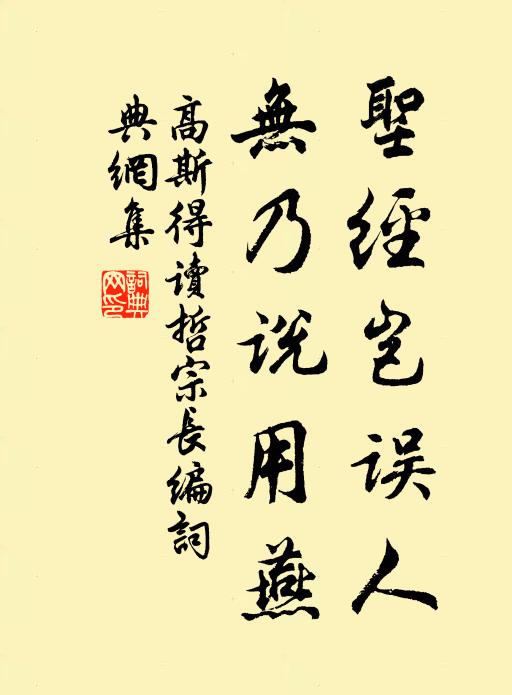 聖經豈誤人
無乃說用燕
高斯得讀哲宗長编詞
典網集
詞典網印